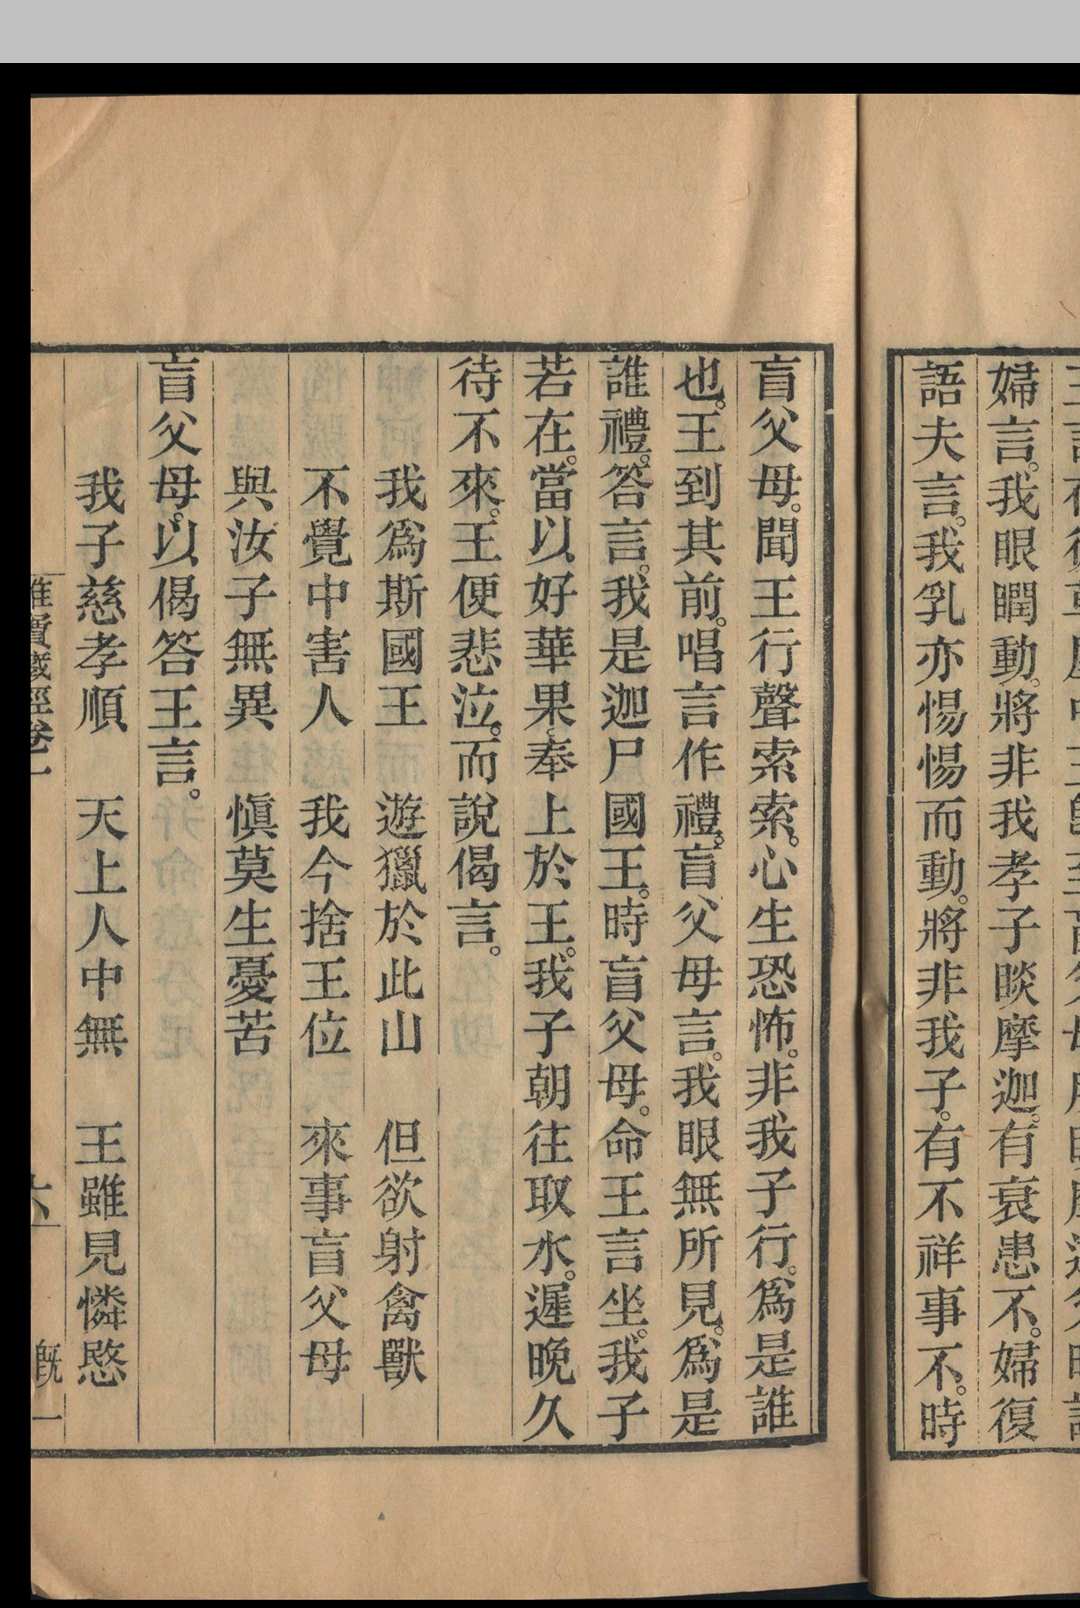 婦言。我眼瞤動。將非我孝子睒摩迦。有衰患不。婦復
語夫言。我乳亦惕惕而動。將非我子。有不祥事不。時
盲父母。聞王行聲索索。心生恐怖。非我子行。爲是誰
也。王到其前。唱言作禮。盲父母言。我眼無所見。爲是
誰禮。答言。我是迦尸國王。時盲父母。命王言坐。我子
若在。當以好華果。奉上於王。我子朝往取水。遲晚久
待不來。王便悲泣。而說偈言。
我爲斯國王　遊獵於此山　但欲射禽獸
不覺中害人　我今捨王位　來事盲父母
與汝子無異　慎莫生憂苦
盲父母。以偈答王言。
我子慈孝順　天上人中無　王雖見憐愍
雜寶藏經卷一　六　旣一